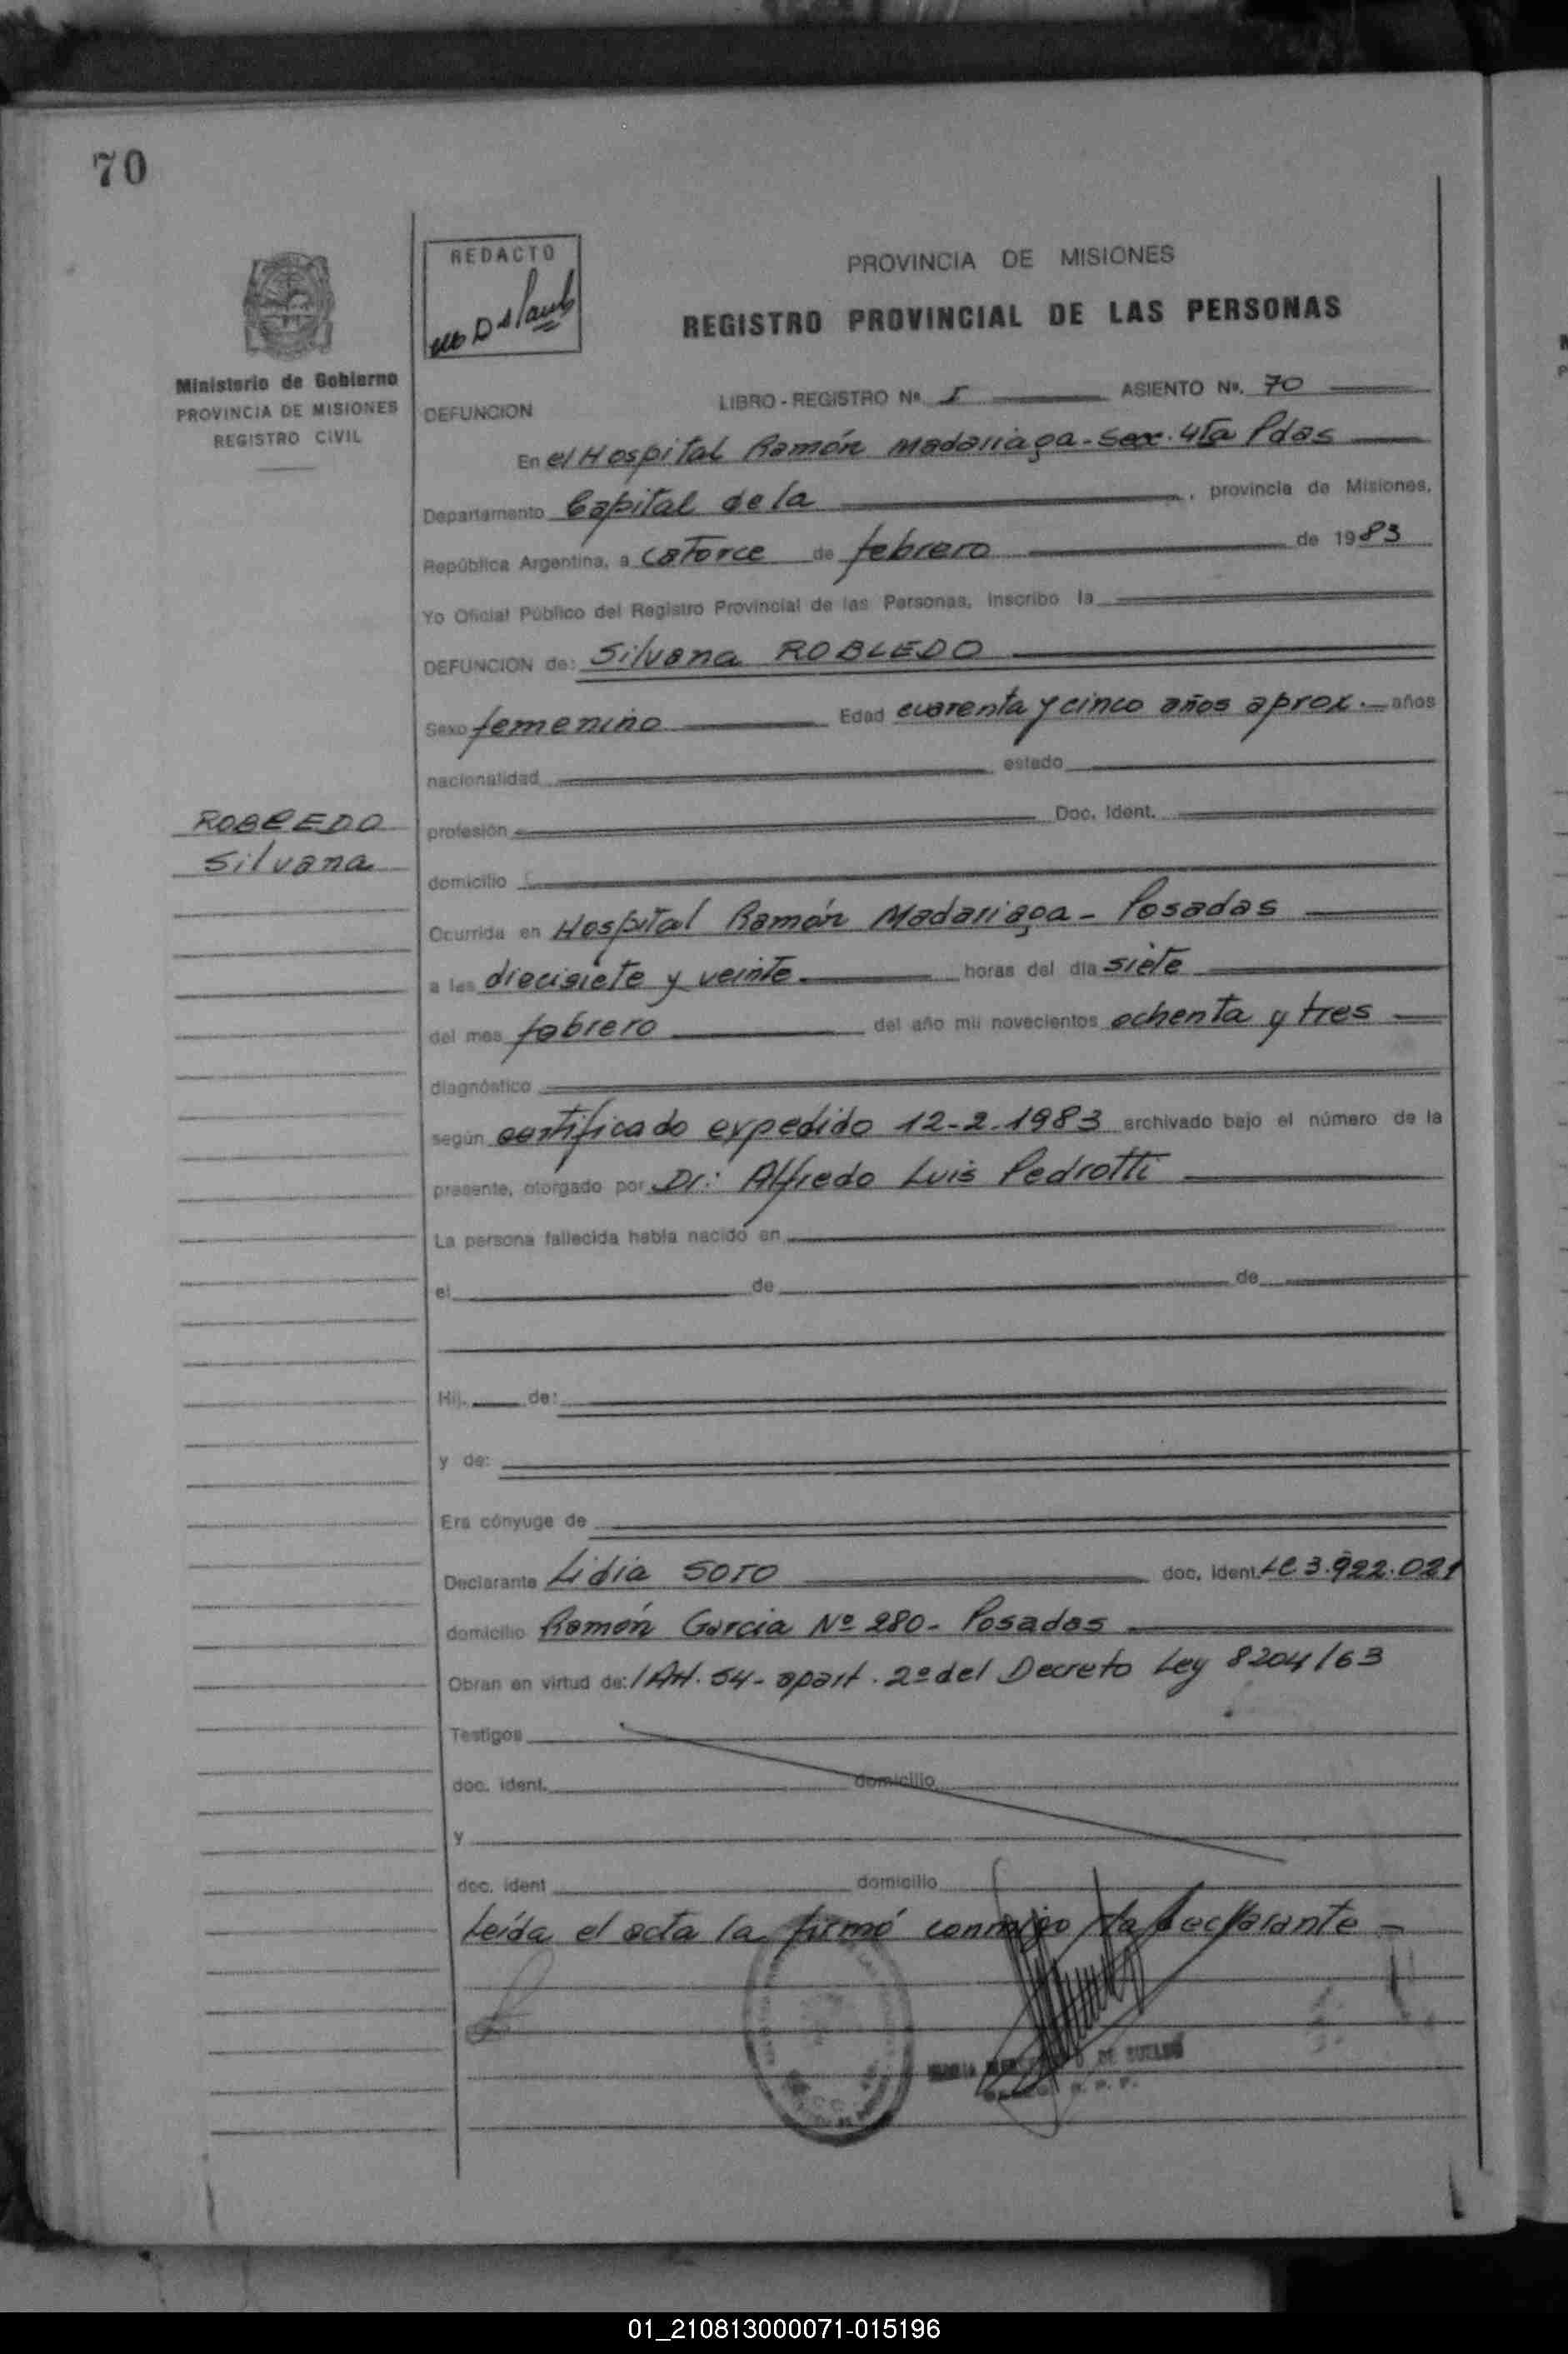 70
REDACTO
PROVINCIA DE MISIONES
REGISTRO PROVINCIAL DE LAS PERSONAS
Ministerio de Gobierno
PROVINCIA DE MISIONES
REGISTRO CIVIL
DEFUNCION
LIBRO - REGISTRO Nº I ASIENTO Nº. 70
En el Hospital Ramón Madariaga - Secc. 4ta Pdas
Departamento Capital de la , provincia de Misiones,
República Argentina, a catorce de febrero de 1983
Yo Oficial Público del Registro Provincial de las Personas, inscribo la
DEFUNCION de: Silvana ROBLEDO
Sexo femenino Edad cuarenta y cinco años aprox. años
nacionalidad estado
ROBLEDO
Silvana
profesión Doc. Ident.
domicilio
Ocurrida en Hospital Ramón Madariaga - Posadas
a las diecisiete y veinte horas del día siete
del mes febrero del año mil novecientos ochenta y tres
diagnóstico
según certificado expedido 12-2-1983 archivado bajo el número de la
presente, otorgado por Dr: Alfredo Luis Pedrotti
La persona fallecida había nacido en
el de de
Hij. de:
y de:
Era cónyuge de
Declarante Lidia SOTO doc. ident. LC 3.922.021
domicilio Ramón Garcia Nº 280 - Posadas
Obran en virtud de: Art. 54 - apart. 2º del Decreto Ley 8204/63
Testigos
doc. ident. domicilio
y
doc. ident domicilio
Leída el acta la firmó conmigo la declarante -
DE
01_210813000071-015196